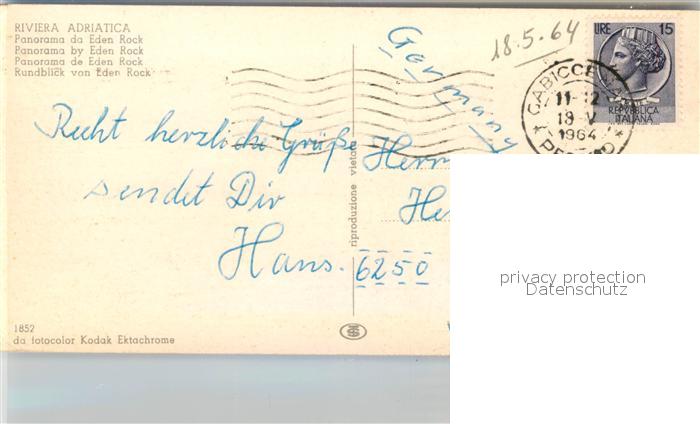 RIVIERA ADRIATICA
Panorama da Eden Rock
Panorama by Eden Rock
Panorama de Eden Rock
Rundblick von Eden Rock
Germany
18.5.64
LIRE 15
REPVBBLICA
ITALIANA
GABICCE
11-12
18 V
1964
Recht herzliche Grüße
sendet Dir
Hans.
riproduzione vietata
Herrn
6250
privacy protection
Datenschutz
1852
da fotocolor Kodak Ektachrome